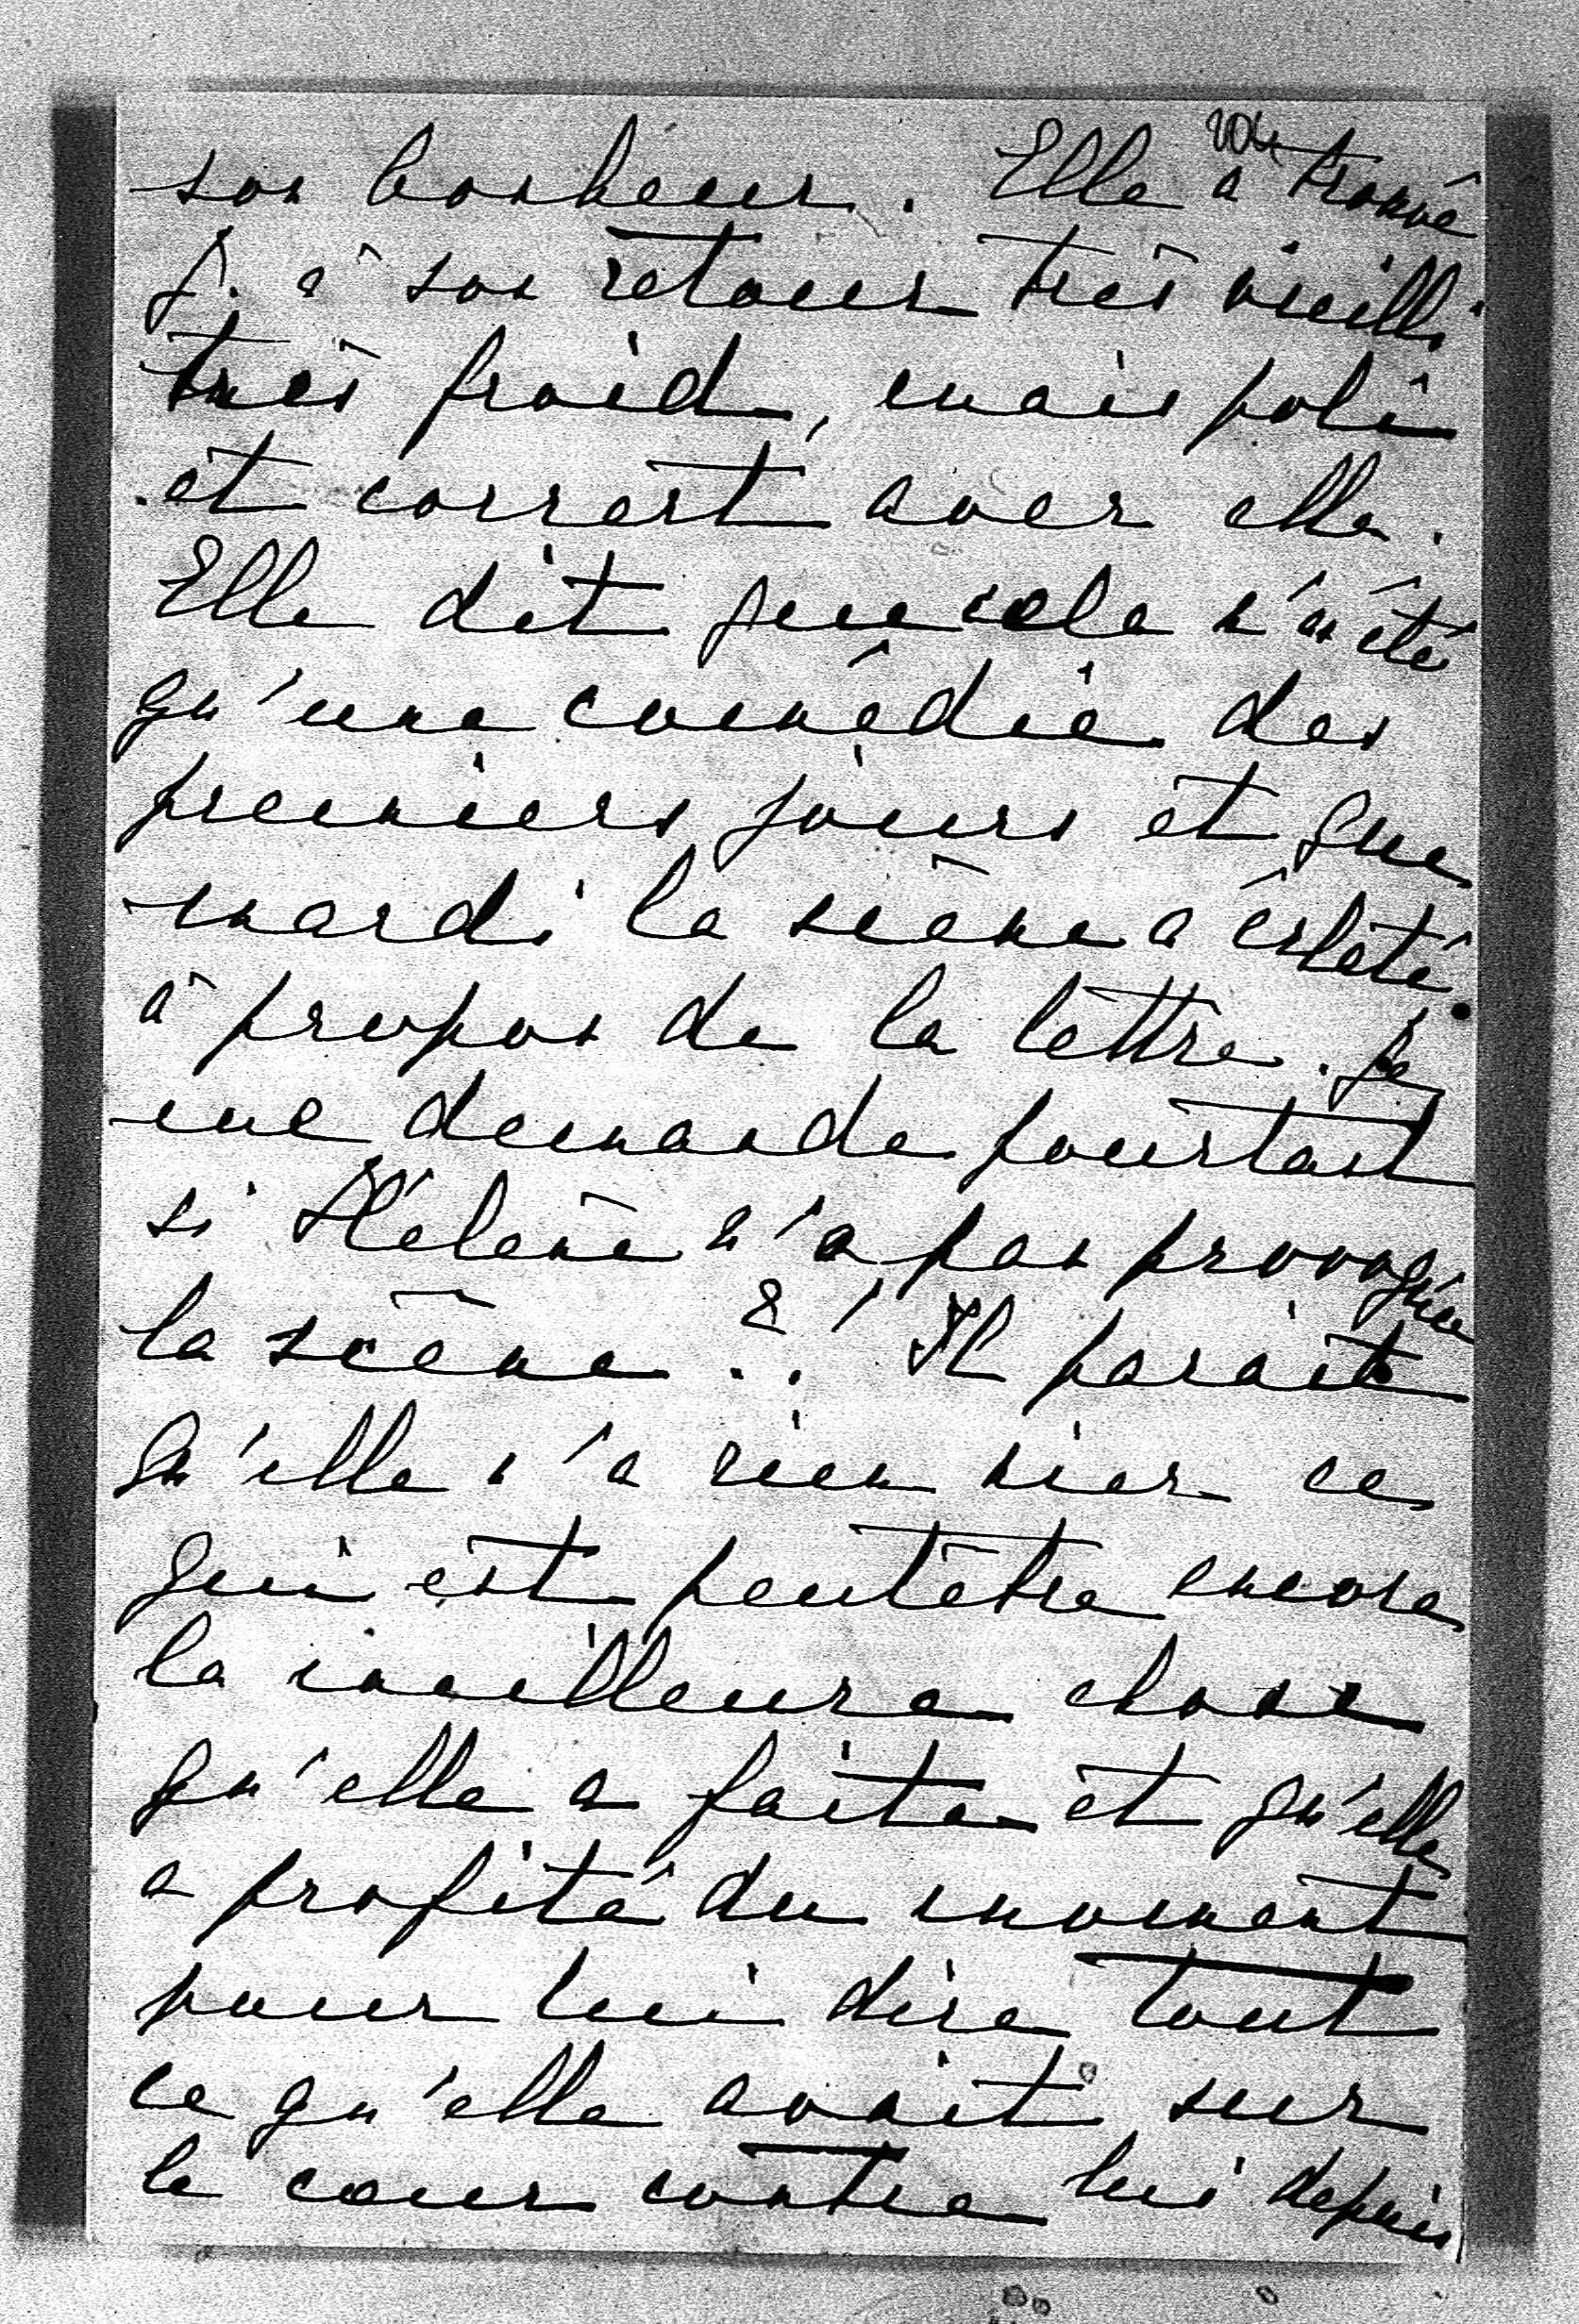 204
son bonheur. Elle a trouvé
J. à son retour très vieilli
très froid, mais poli
et correct avec elle.
Elle dit que cela n'a été
qu'une comédie des
premiers jours et que
mardi la scène a éclaté
à propos de la lettre. Je
me demande pourtant
si Hélène n'a pas provoquée
la scène ?! Il parait
qu'elle n'a rien nier ce
qui est peutêtre encore
la meilleure chose
qu'elle a faite et qu'elle
a profité du moment
pour lui dire tout
ce qu'elle avait sur
le cœur contre lui depuis